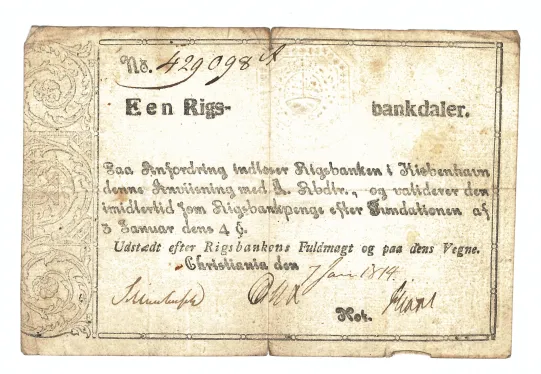 No. 429098 A
Een Rigs- bankdaler.
Paa Anfordring indløser Rigsbanken i Kiøbenhavn
denne Anviisning med 1. Rbdlr., og validerer den
imidlertid som Rigsbankpenge efter Fundationen af
5 Januar dens 4 §.
Udstædt efter Rigsbankens Fuldmagt og paa dens Vegne.
Christiania den 1814.
Not.